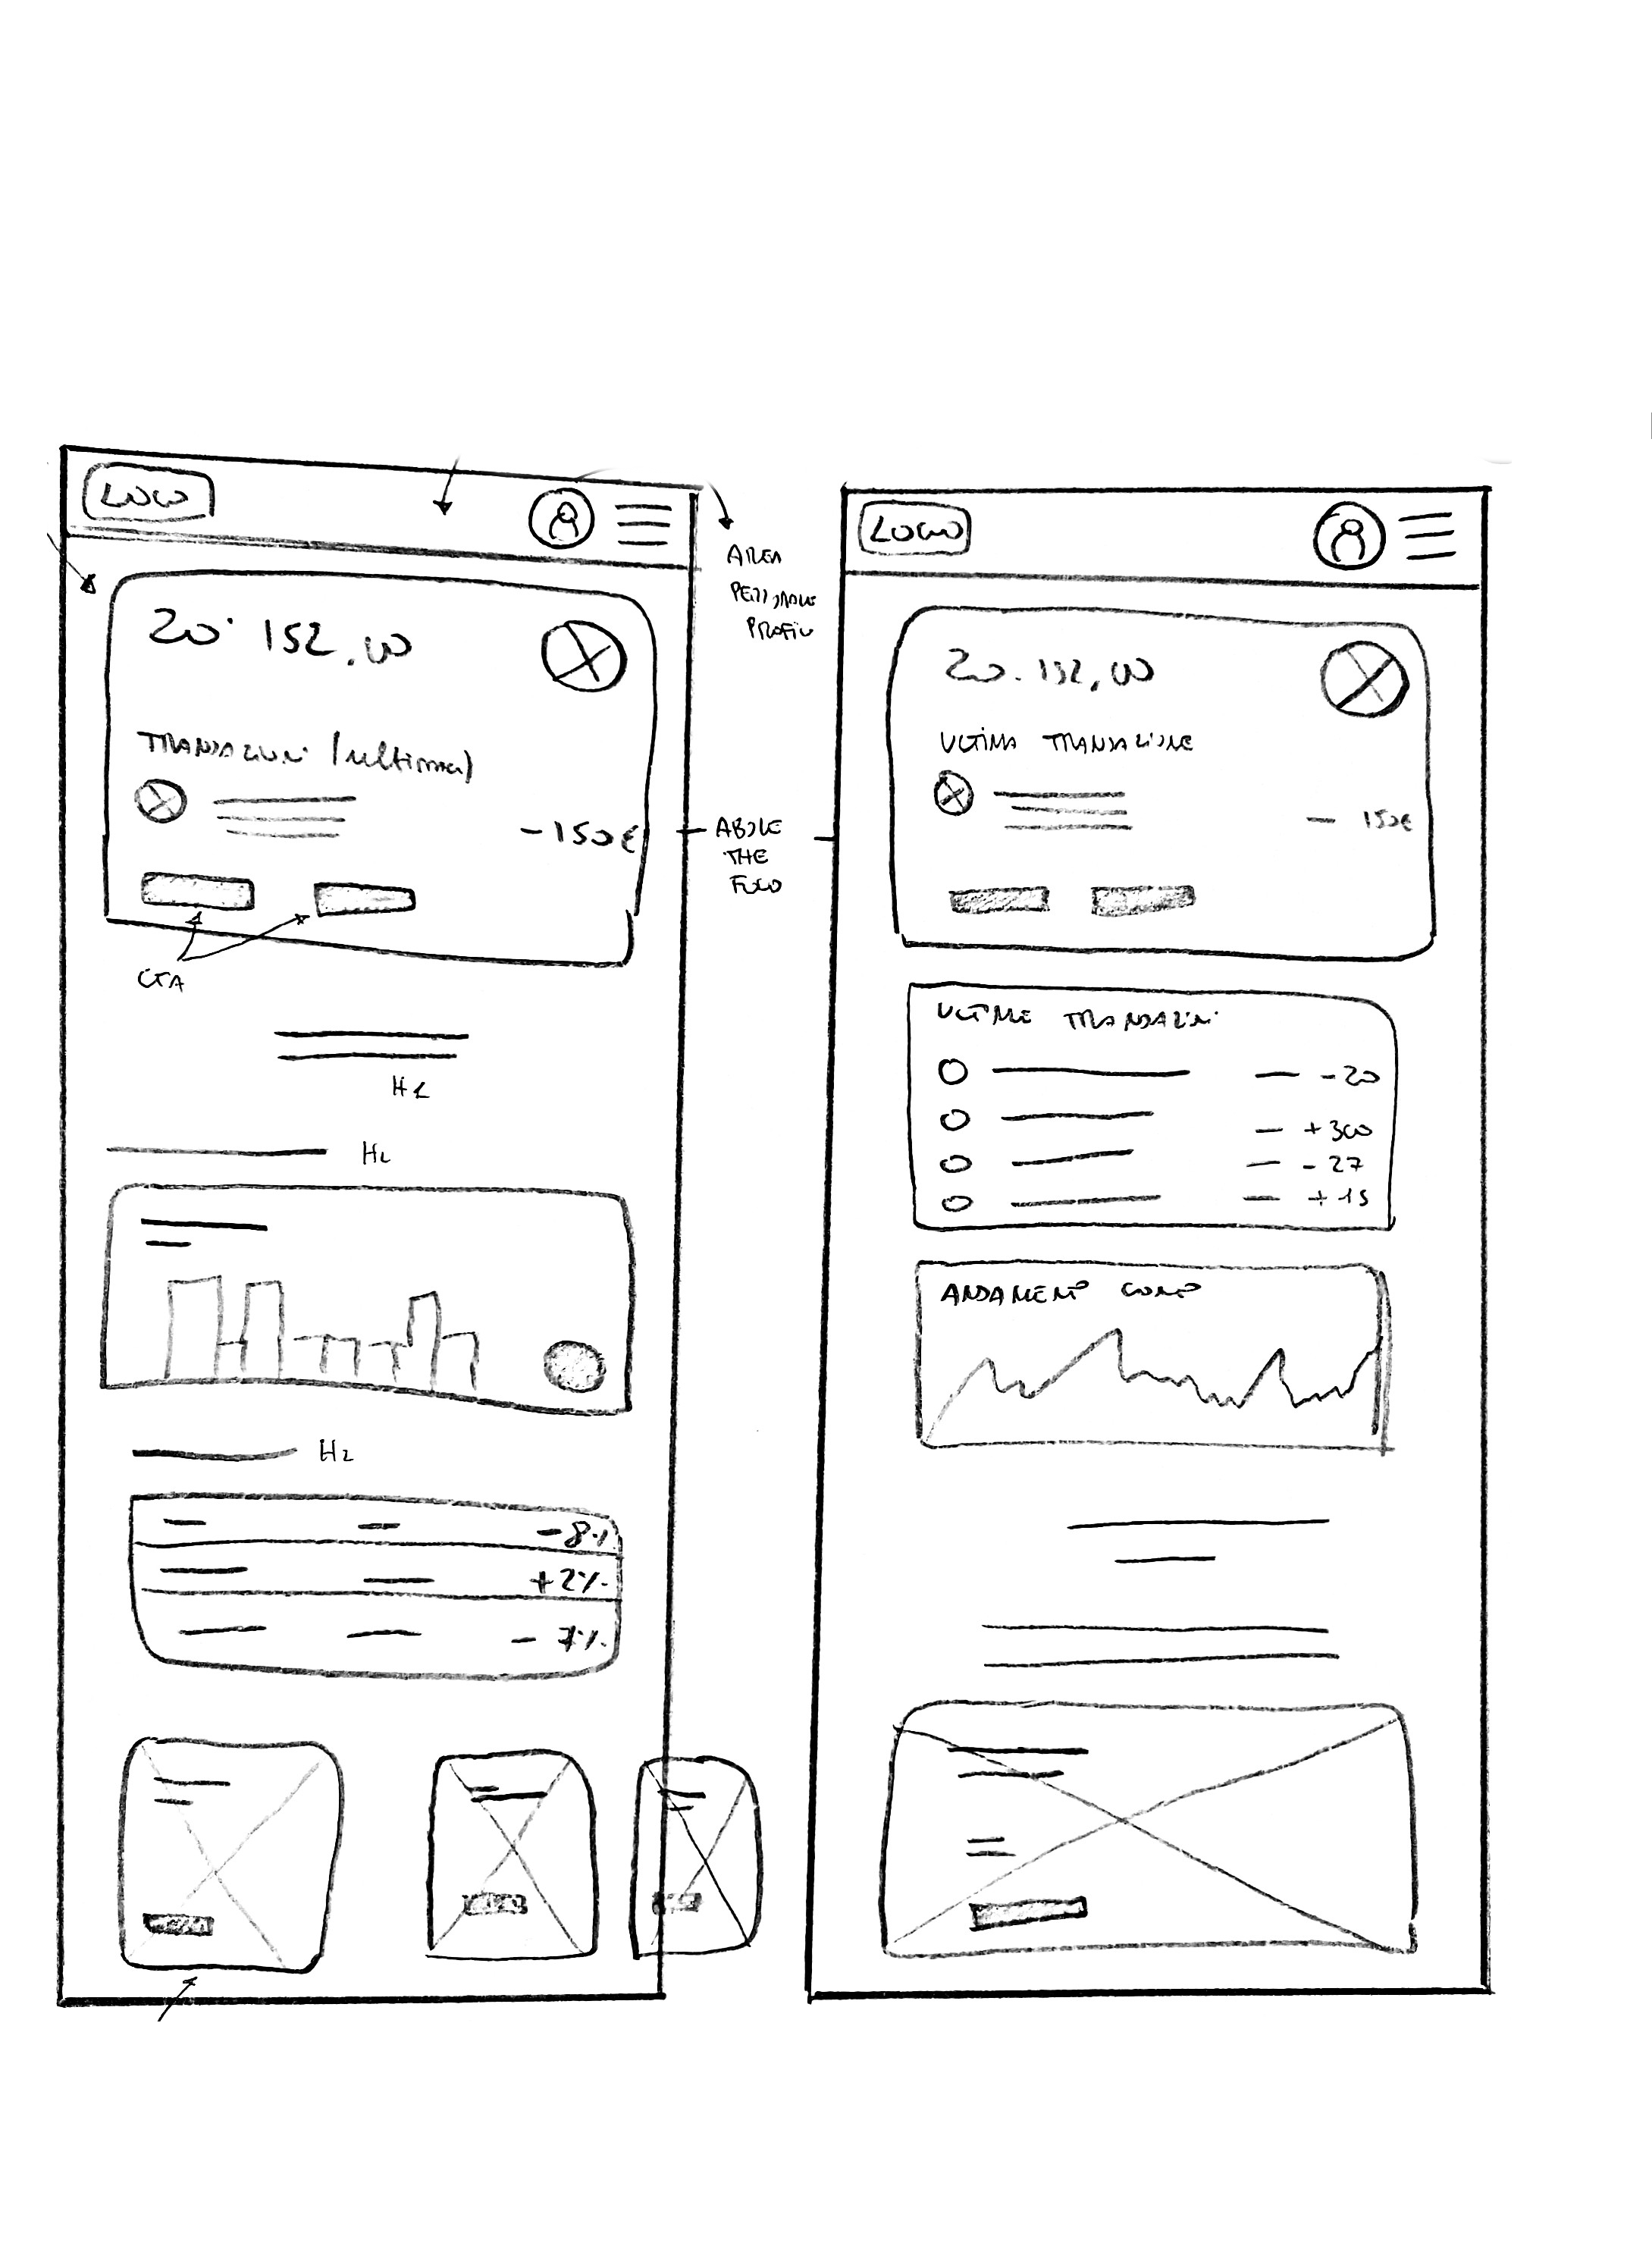 LOGO
20.152,00
TRANSAZIONI (ultima)
-150€
CTA
H1
H2
H2
-8%
+2%
- 7%
AREA
PERSONALE
PROFILO
ABOVE
THE
FOLD
LOGO
20.152,00
ULTIMA TRANSAZIONE
- 150€
ULTIME TRANSAZIONI
- -20
- +300
- -27
- +15
ANDAMENTO CONTO